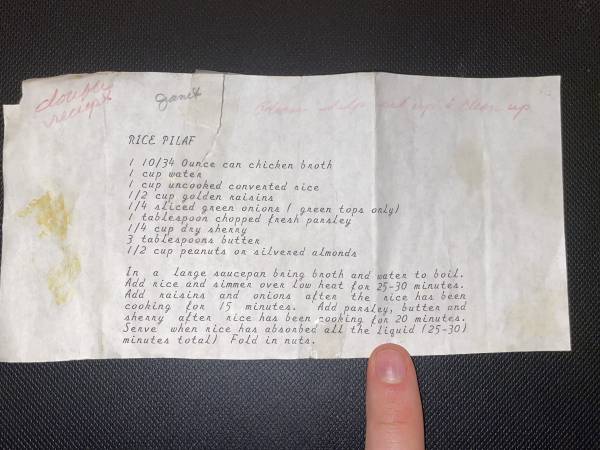 double
receipt
Janet
help set up & clean up
RICE PILAF
1 10/34 Ounce can chicken broth
1 cup water
1 cup uncooked converted rice
1/2 cup golden raisins
1/4 sliced green onions ( green tops only)
1 tablespoon chopped fresh parsley
1/4 cup dry sherry
3 tablespoons butter
1/2 cup peanuts or silvered almonds
In a large saucepan bring broth and water to boil.
Add rice and simmer over low heat for 25-30 minutes.
Add raisins and onions after the rice has been
cooking for 15 minutes. Add parsley, butter and
sherry after rice has been cooking for 20 minutes.
Serve when rice has absorbed all the liquid (25-30)
minutes total) Fold in nuts.